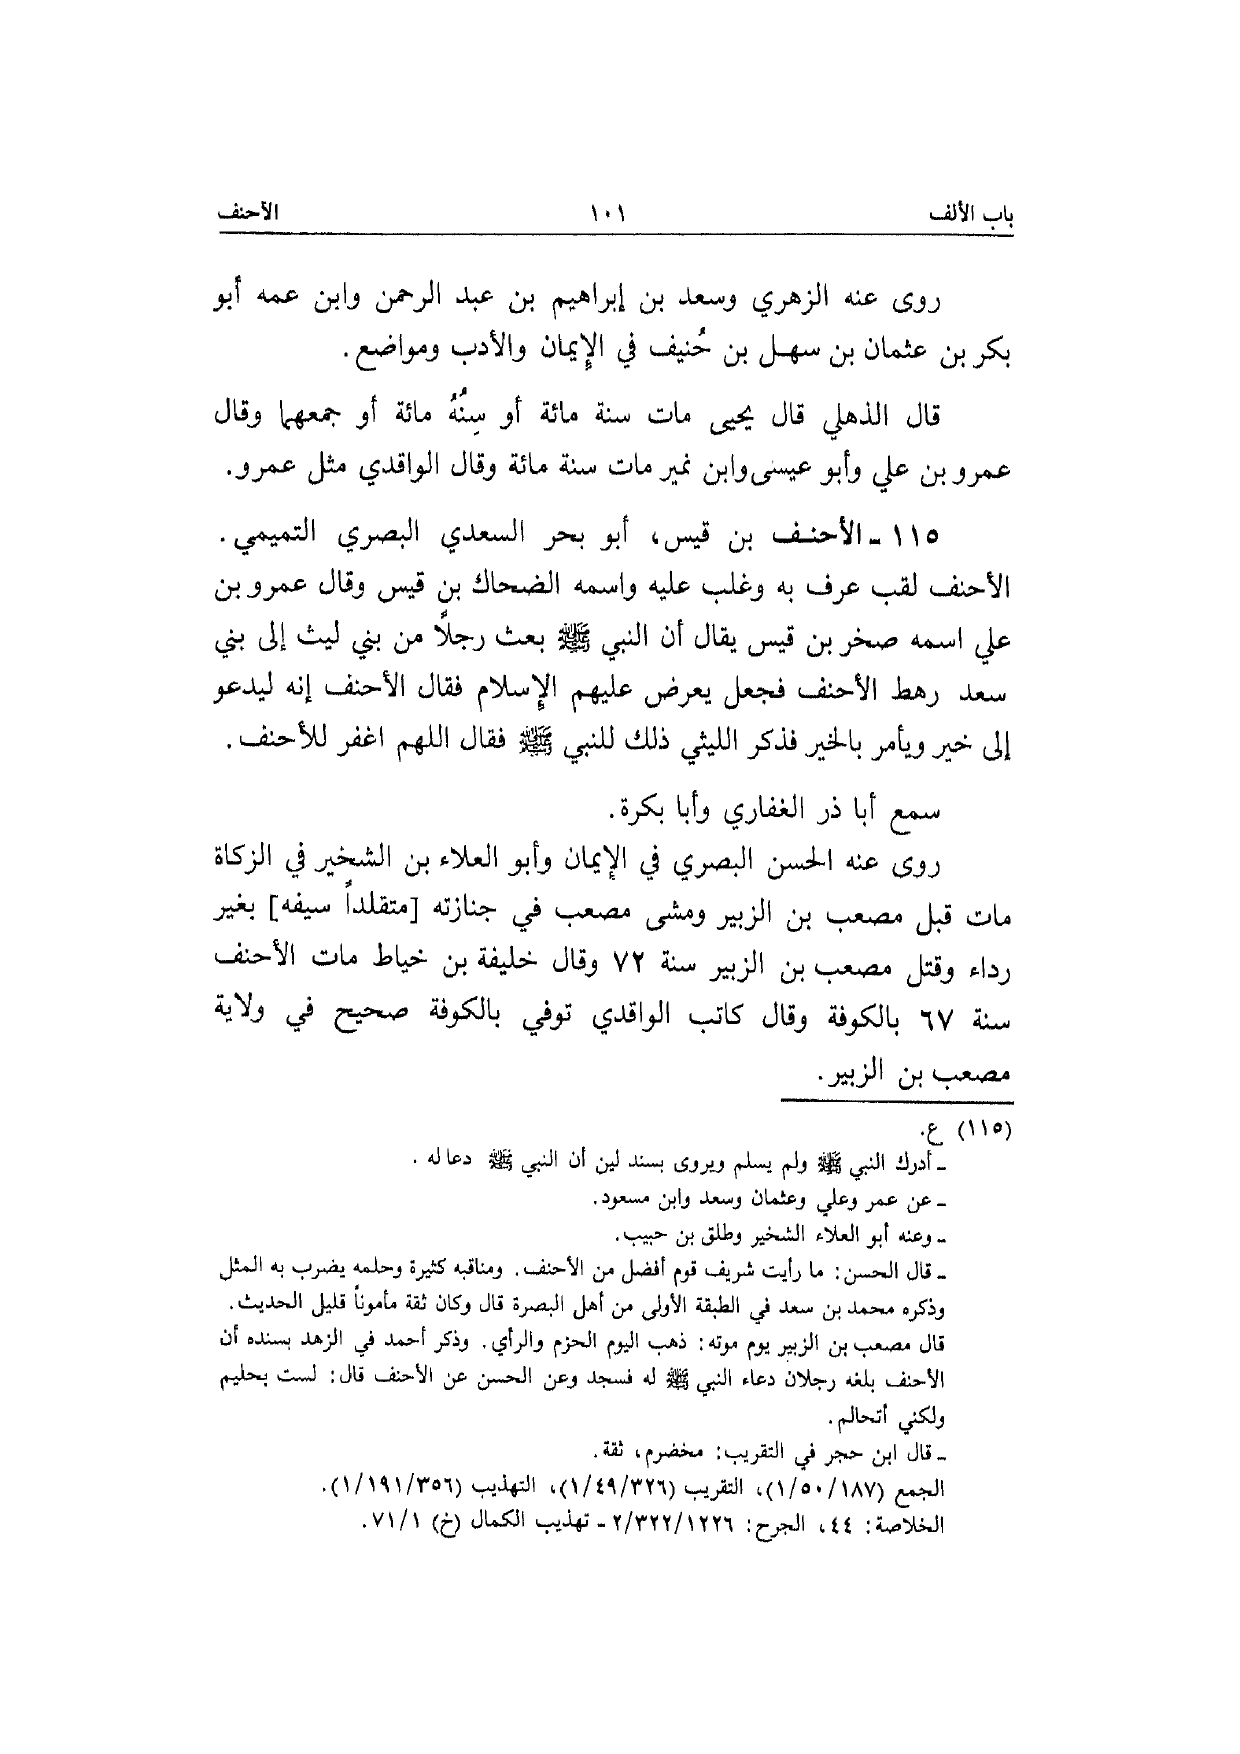 باب الألف ١٠١ الأحنف
روى عنه الزهري وسعد بن إبراهيم بن عبد الرحمن وابن عمه أبو
بكر بن عثمان بن سهل بن حُنيف في الإيمان والأدب ومواضع.
قال الذهلي قال يحيى مات سنة مائة أو سِنُهُ مائة أو جمعهما وقال
عمرو بن علي وأبو عيسى وابن نمير مات سنة مائة وقال الواقدي مثل عمرو.
١١٥ ـ الأحنف بن قيس، أبو بحر السعدي البصري التميمي.
الأحنف لقب عرف به وغلب عليه واسمه الضحاك بن قيس وقال عمرو بن
علي اسمه صخر بن قيس يقال أن النبي ﷺ بعث رجلاً من بني ليث إلى بني
سعد رهط الأحنف فجعل يعرض عليهم الإسلام فقال الأحنف إنه ليدعو
إلى خير ويأمر بالخير فذكر الليثي ذلك للنبي ﷺ فقال اللهم اغفر للأحنف.
سمع أبا ذر الغفاري وأبا بكرة.
روى عنه الحسن البصري في الإيمان وأبو العلاء بن الشخير في الزكاة
مات قبل مصعب بن الزبير ومشى مصعب في جنازته [متقلداً سيفه] بغير
رداء وقتل مصعب بن الزبير سنة ٧٢ وقال خليفة بن خياط مات الأحنف
سنة ٦٧ بالكوفة وقال كاتب الواقدي توفي بالكوفة صحيح في ولاية
مصعب بن الزبير.
(١١٥) ع.
ـ أدرك النبي ﷺ ولم يسلم ويروى بسند لين أن النبي ﷺ دعا له.
ـ عن عمر وعلي وعثمان وسعد وابن مسعود.
ـ وعنه أبو العلاء الشخير وطلق بن حبيب.
ـ قال الحسن: ما رأيت شريف قوم أفضل من الأحنف. ومناقبه كثيرة وحلمه يضرب به المثل
وذكره محمد بن سعد في الطبقة الأولى من أهل البصرة قال وكان ثقة مأموناً قليل الحديث.
قال مصعب بن الزبير يوم موته: ذهب اليوم الحزم والرأي. وذكر أحمد في الزهد بسنده أن
الأحنف بلغه رجلان دعاء النبي ﷺ له فسجد وعن الحسن عن الأحنف قال: لست بحليم
ولكني أتحالم.
ـ قال ابن حجر في التقريب: مخضرم، ثقة.
الجمع (١/٥٠/١٨٧)، التقريب (١/٤٩/٣٢٦)، التهذيب (١/١٩١/٣٥٦).
الخلاصة: ٤٤، الجرح: ٢/٣٢٢/١٢٢٦ ـ تهذيب الكمال (خ) ٧١/١.